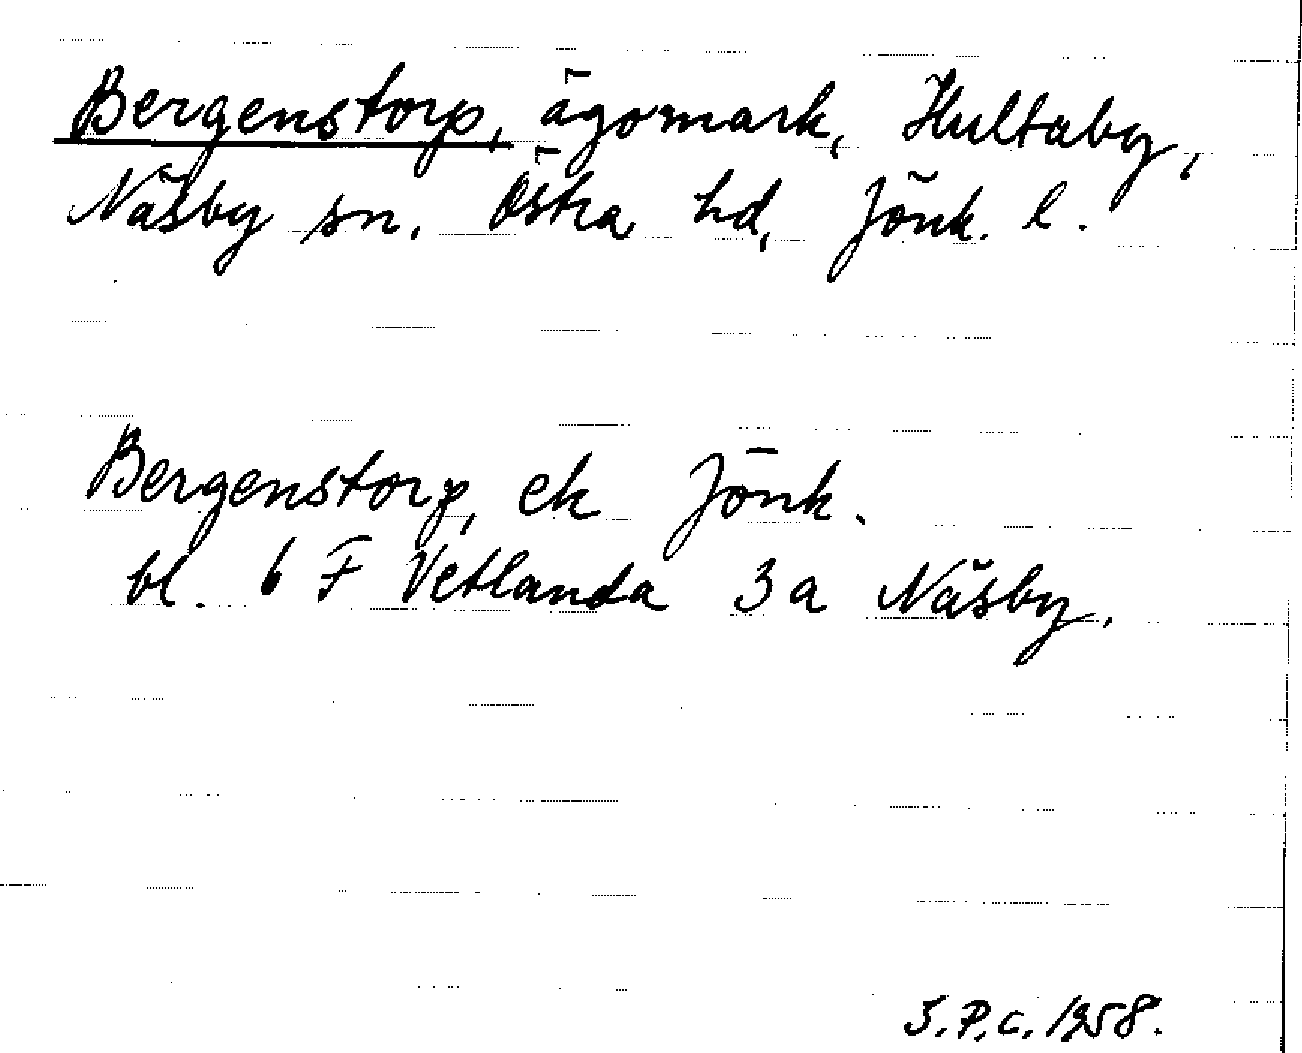 Bergenstorp, ägomark, Hultaby,
Näsby sn. Östra hd, Jönk. l.
Bergenstorp, ek Jönk.
bl. 6 F Vetlanda 3a Näsby.
S.P.C. 1958.